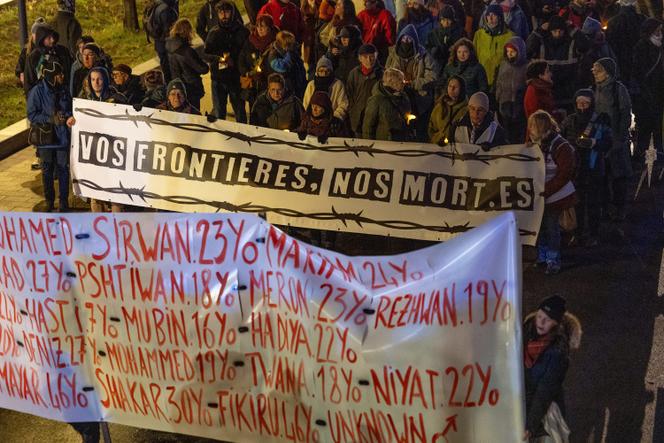 VOS FRONTIERES, NOS MORT.ES
OHAMED SIRWAN.23Yo MARYAM.24Yo
27Yo PSHTIWAN.18Yo MERON.23Yo REZHWAN.19Yo
HAST 17Yo MUBIN.16Yo HADIYA 22Yo
DENIZ.27 MUHAMMED.19Yo TWANA.18Yo NIYAT.22Yo
MAYAR.46Yo SHAKAR.30Yo FIKIRU.46Yo UNKNOWN